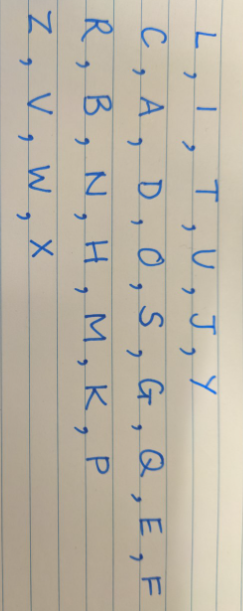 L, I, T, U, J, Y
C, A, D, O, S, G, Q, E, F
R, B, N, H, M, K, P
Z, V, W, X